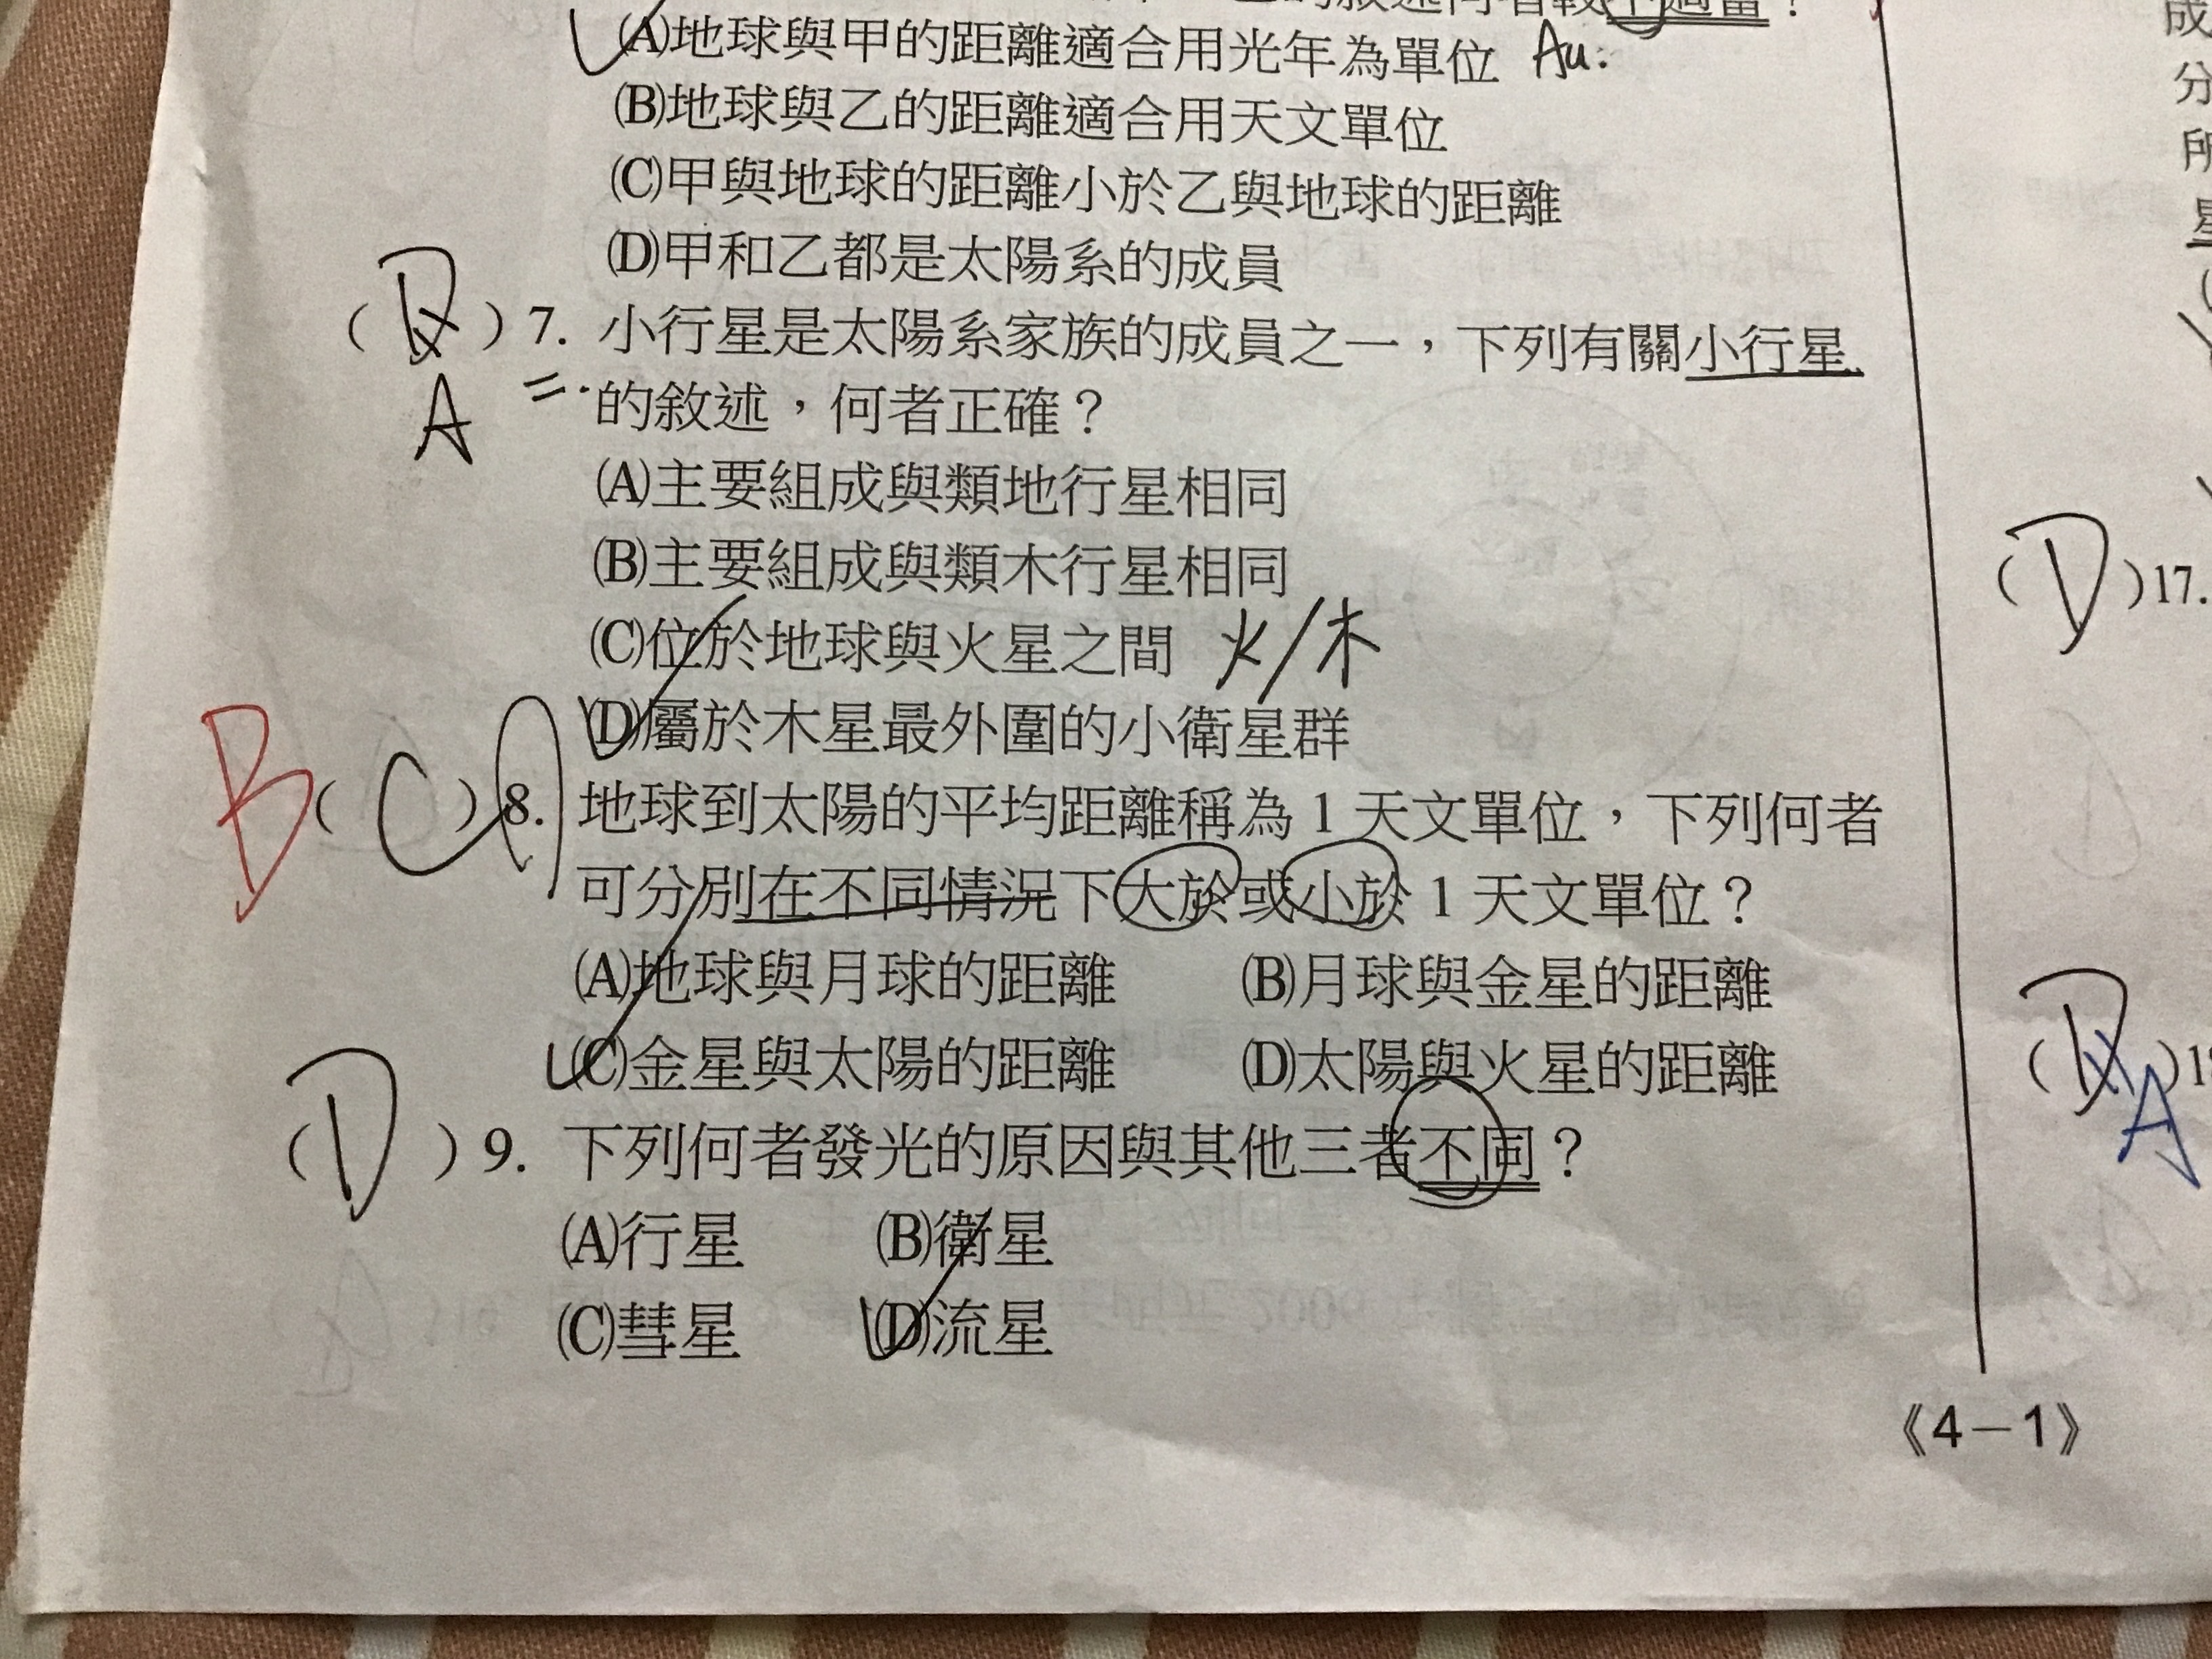 的敘述何者較不適當？
(A)地球與甲的距離適合用光年為單位 Au.
(B)地球與乙的距離適合用天文單位
(C)甲與地球的距離小於乙與地球的距離
(D)甲和乙都是太陽系的成員
(D) 7. 小行星是太陽系家族的成員之一，下列有關小行星
A 的敘述，何者正確？
(A)主要組成與類地行星相同
(B)主要組成與類木行星相同
(C)位於地球與火星之間 火/木
(D)屬於木星最外圍的小衛星群
B (C) 8. 地球到太陽的平均距離稱為 1 天文單位，下列何者
可分別在不同情況下大於或小於 1 天文單位？
(A)地球與月球的距離 (B)月球與金星的距離
(C)金星與太陽的距離 (D)太陽與火星的距離
(D) 9. 下列何者發光的原因與其他三者不同？
(A)行星 (B)衛星
(C)彗星 (D)流星
《4－1》
成
分
所
星
(D)17.
(D)
A